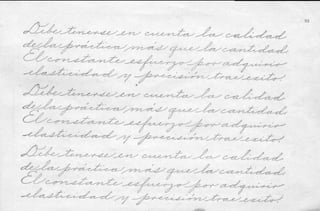 Debe tenerse en cuenta la calidad
de la práctica más que la cantidad
El constante esfuerzo por adquirir
elasticidad y precisión trae éxito
Debe tenerse en cuenta la calidad
de la práctica más que la cantidad
El constante esfuerzo por adquirir
elasticidad y precisión trae éxito
Debe tenerse en cuenta la calidad
de la práctica más que la cantidad
El constante esfuerzo por adquirir
elasticidad y precisión trae éxito